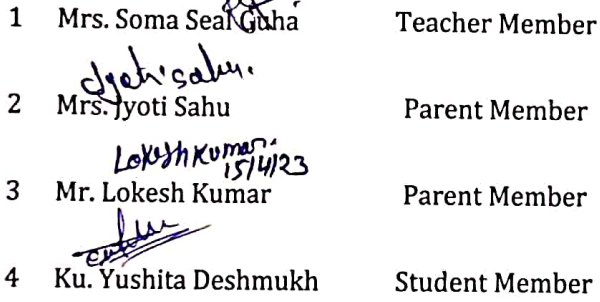 1 Mrs. Soma Seal Guha Teacher Member
Jyoti Sahu.
2 Mrs. Jyoti Sahu Parent Member
Lokesh Kumar.
15/4/23
3 Mr. Lokesh Kumar Parent Member
4 Ku. Yushita Deshmukh Student Member